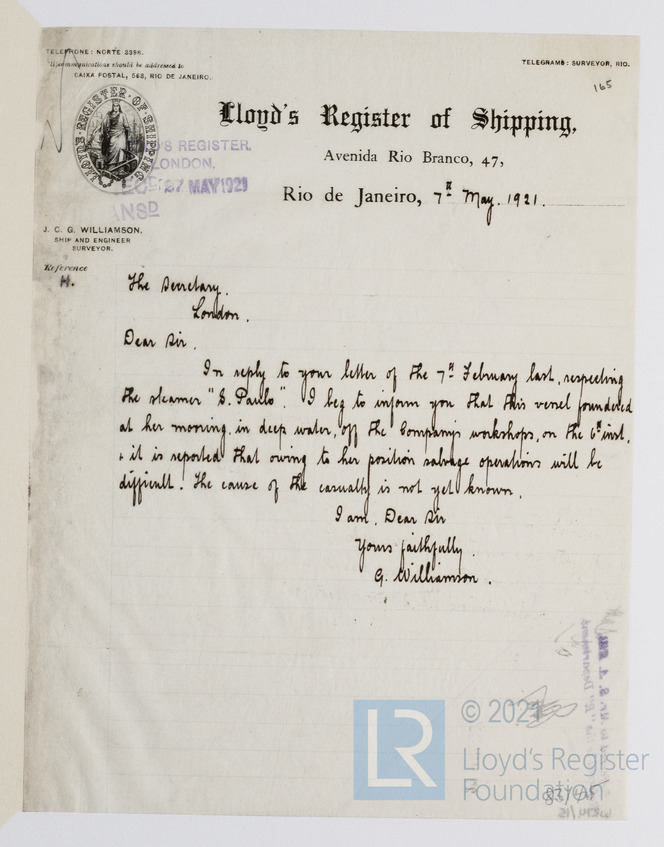 TELEPHONE: NORTE 3398.
All communications should be addressed to
CAIXA POSTAL, 568, RIO DE JANEIRO.
TELEGRAMS: SURVEYOR, RIO.
165
LLOYD'S REGISTER OF SHIPPING
Lloyd's Register of Shipping,
'S REGISTER,
LONDON,
27 MAY 1921
ANSD
Avenida Rio Branco, 47,
Rio de Janeiro, 7th May. 1921.
J. C. G. WILLIAMSON,
SHIP AND ENGINEER
SURVEYOR.
Reference
H.
The Secretary.
London.
Dear Sir.
In reply to your letter of the 7th February last, respecting
the steamer "S. Paulo". I beg to inform you that this vessel foundered
at her mooring, in deep water, off the Company's workshops, on the 6th inst,
+ it is reported that owing to her position salvage operations will be
difficult. The cause of the casualty is not yet known.
I am, Dear Sir
Yours faithfully.
G. Williamson.
LR
© 2021
Lloyd's Register
Foundation